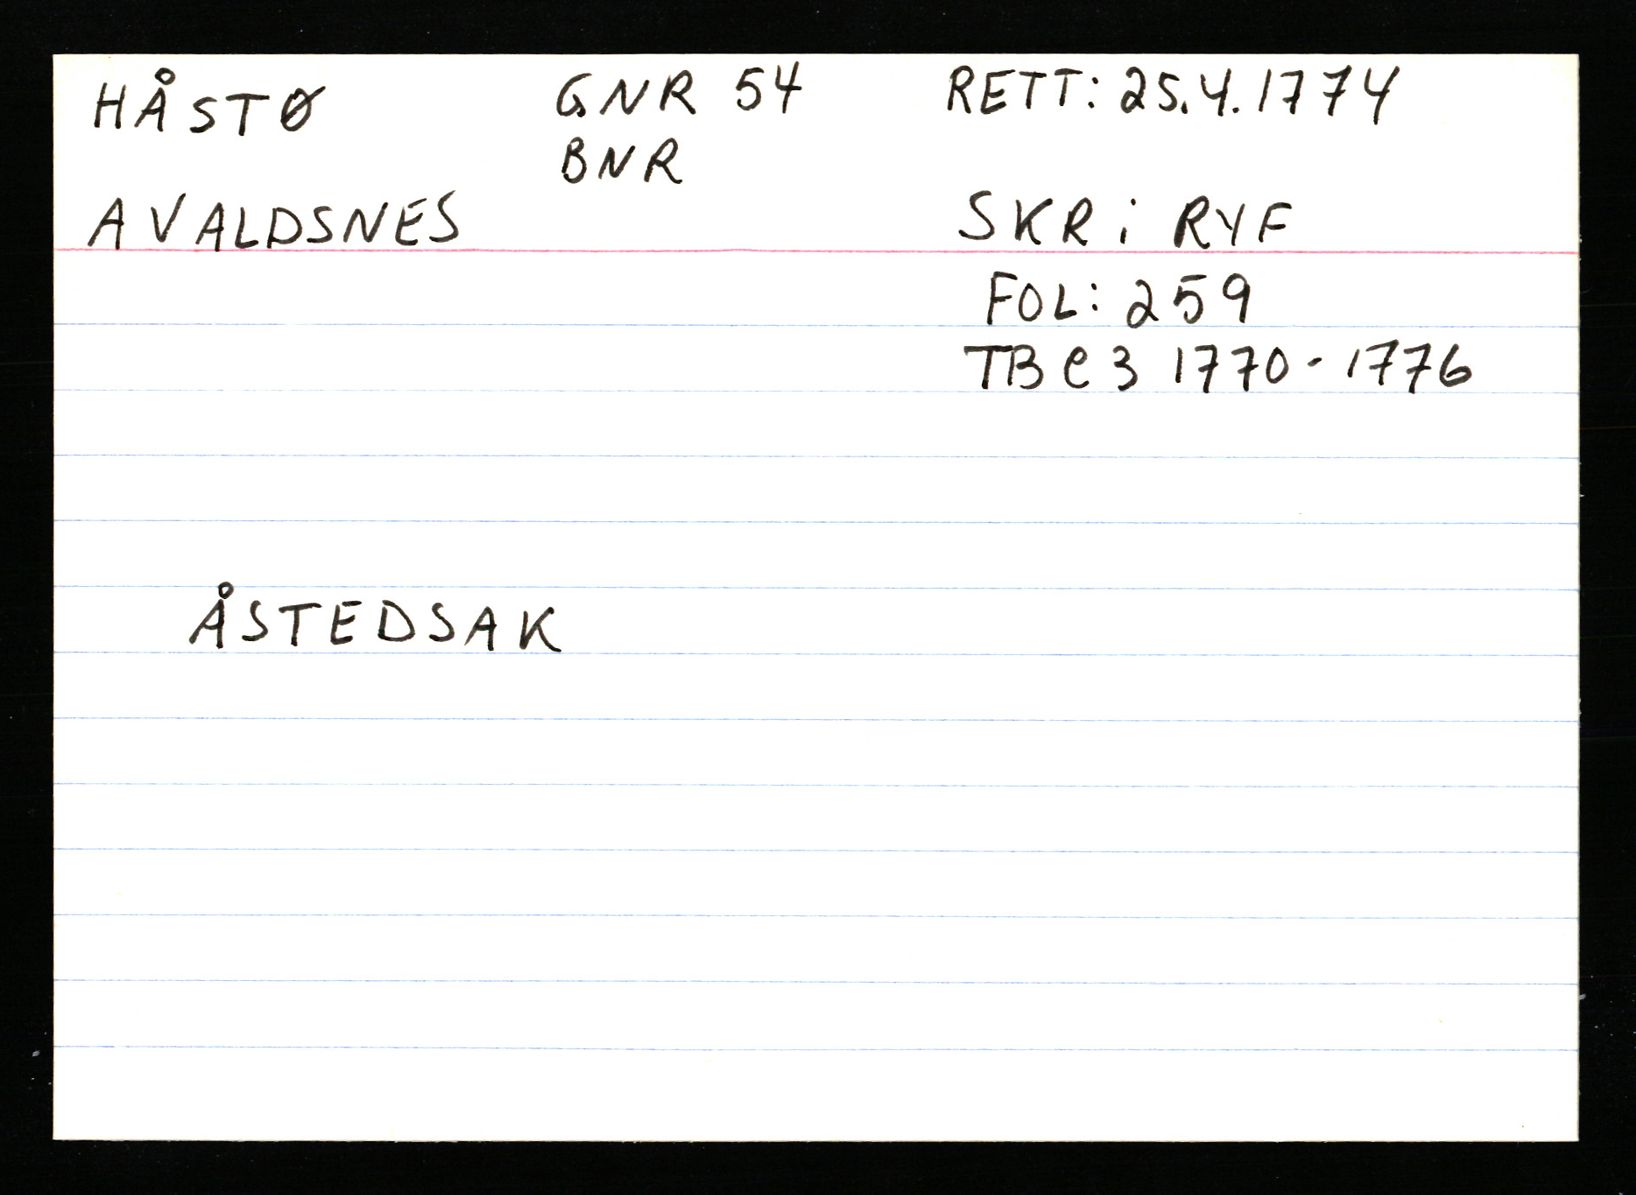 HÅSTØ GNR 54 RETT: 25.4.1774
BNR
AVALDSNES SKR i RYF
FOL: 259
TB C 3 1770-1776
ÅSTEDSAK